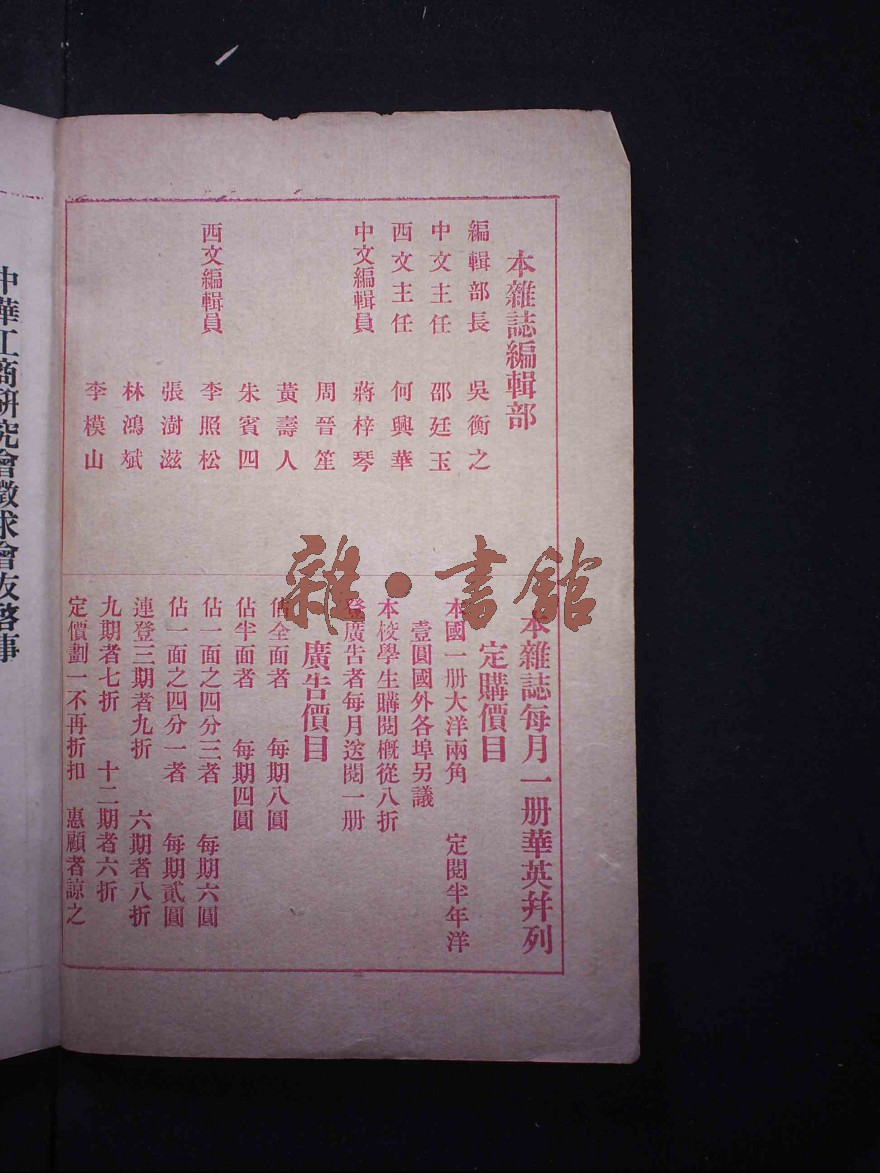 本雜誌編輯部
編輯部長 吳衡之
中文主任 邵廷玉
西文主任 何興華
中文編輯員 蔣梓琴
周晉笙
黃壽人
朱賓四
西文編輯員 李照松
張澍滋
林鴻斌
李模山
本雜誌每月一册華英幷列
定購價目
本國一册大洋兩角 定閱半年洋
壹圓國外各埠另議
本校學生購閱概從八折
登廣告者每月送閱一册
廣告價目
佔全面者 每期八圓
佔半面者 每期四圓
佔一面之四分三者 每期六圓
佔一面之四分一者 每期貳圓
連登三期者九折 六期者八折
九期者七折 十二期者六折
定價劃一不再折扣 惠顧者諒之
中華工商研究會徵求會友啓事
雜·書館